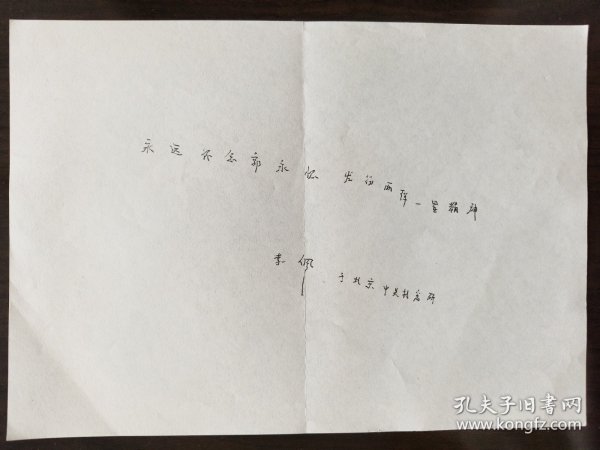 永远怀念郭永怀 发扬两弹一星精神
李佩 于北京中关村
孔夫子旧书网
www.kongfz.com